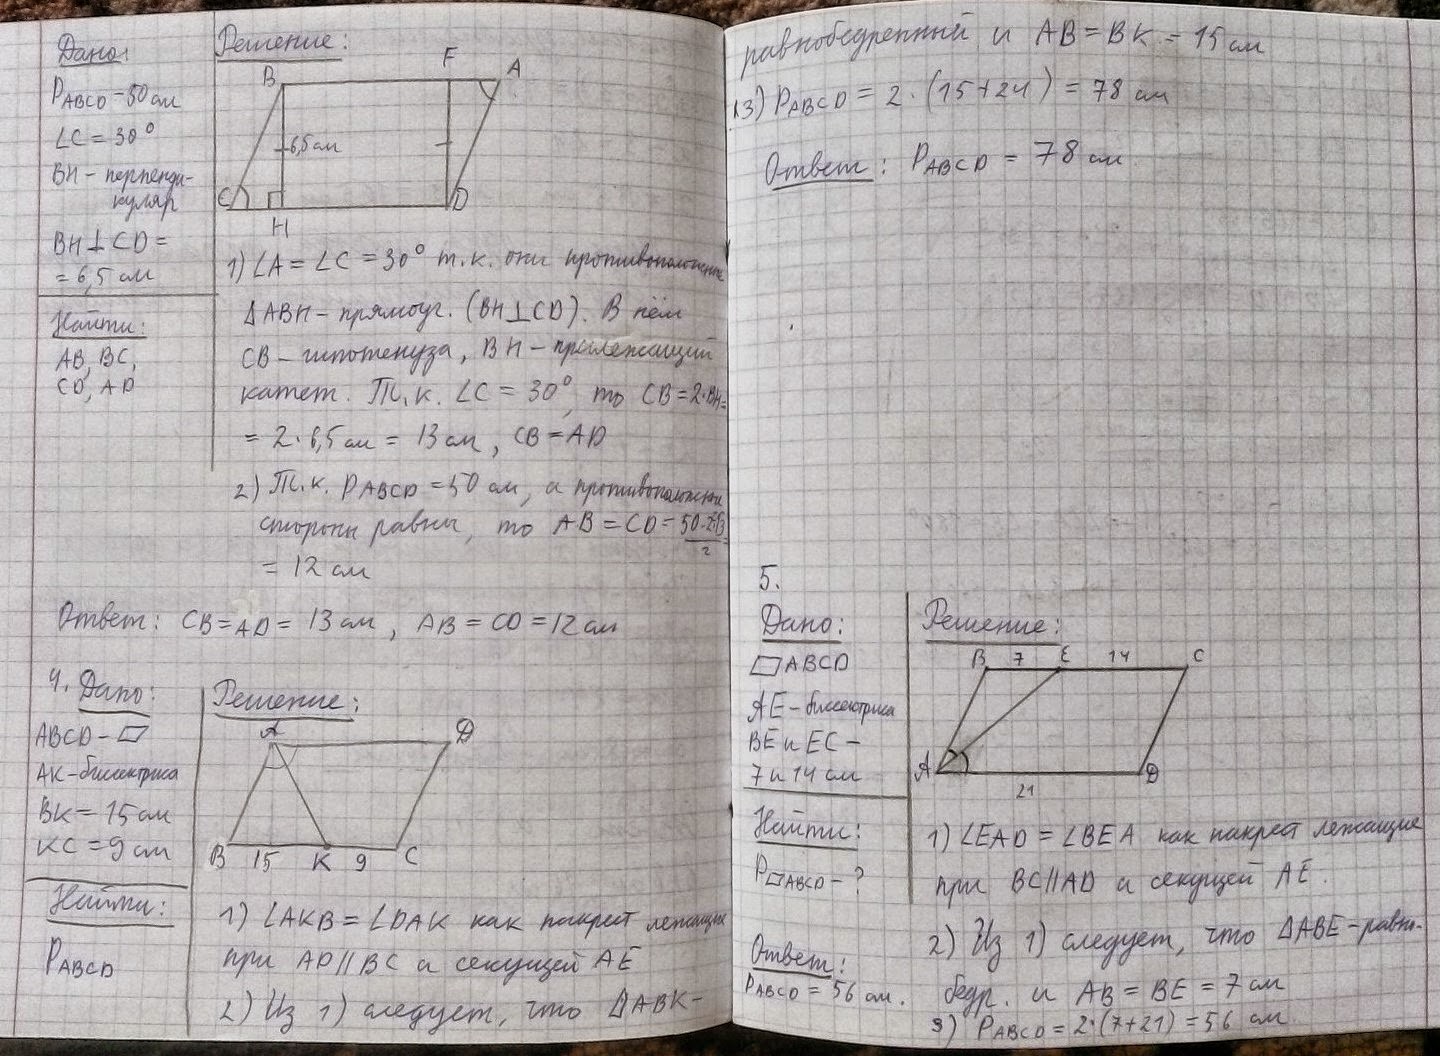 Дано:
P ABCD = 50 см
∠C = 30°
BH - перпенди-
куляр
BH ⊥ CD =
= 6,5 см
Найти:
AB, BC,
CD, AD
Решение:
B F A
6,5 см
C H D
1) ∠A = ∠C = 30° т.к. они противоположные
ΔABH - прямоуг. (BH ⊥ CD). В нём
CB - гипотенуза, BH - прилежащий
катет. Т.к. ∠C = 30°, то CB = 2·BH =
= 2·6,5 см = 13 см, CB = AD
2) Т.к. P ABCD = 50 см, а противоположные
стороны равны, то AB = CD = (50-2·13)/2 =
= 12 см
Ответ: CB = AD = 13 см, AB = CD = 12 см
4. Дано:
ABCD - ▱
AK - биссектриса
BK = 15 см
KC = 9 см
Найти:
P ABCD
Решение:
A D
B 15 K 9 C
1) ∠AKB = ∠DAK как накрест лежащие
при AD || BC и секущей AE
2) Из 1) следует, что ΔABK -
равнобедренный и AB = BK = 15 см
3) P ABCD = 2·(15+24) = 78 см
Ответ: P ABCD = 78 см
5.
Дано:
▱ABCD
AE - биссектриса
BE и EC -
7 и 14 см
Найти:
P▱ABCD - ?
Ответ:
P ABCD = 56 см.
Решение:
B 7 E 14 C
A D
21
1) ∠EAD = ∠BEA как накрест лежащие
при BC || AD и секущей AE.
2) Из 1) следует, что ΔABE - равно-
бедр. и AB = BE = 7 см
3) P ABCD = 2·(7+21) = 56 см.